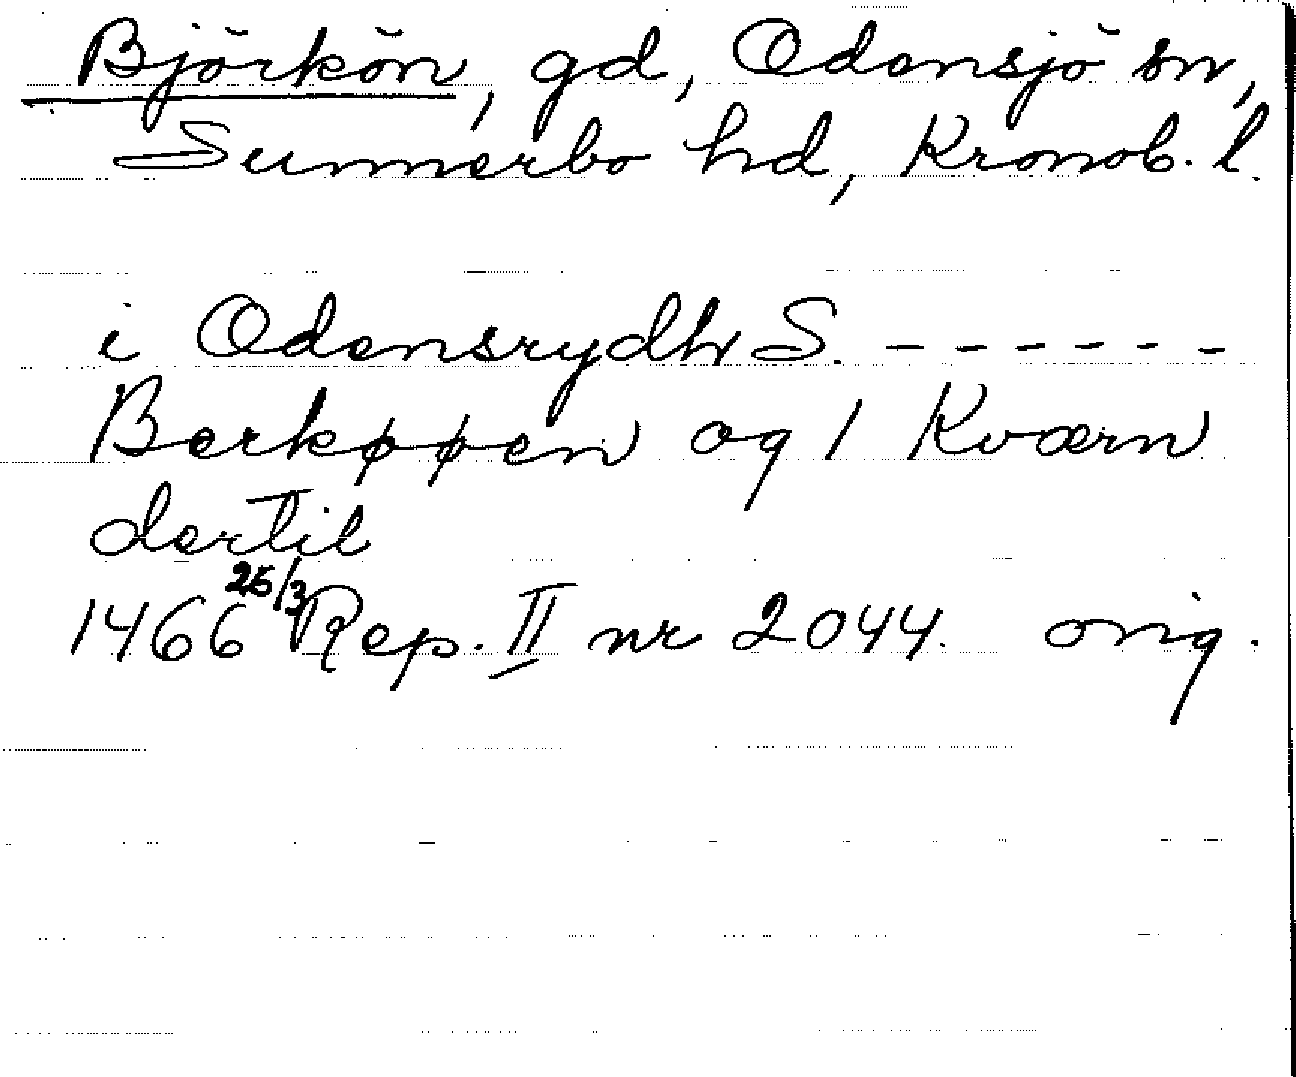 Björkön, gd, Odensjö sn,
Sunnerbo hd, Kronob. l.
i Odensrydh S. - - - - - -
Berkøøen og 1 Kværn
dertil
1466 26/3 Rep. II nr 2044. orig.